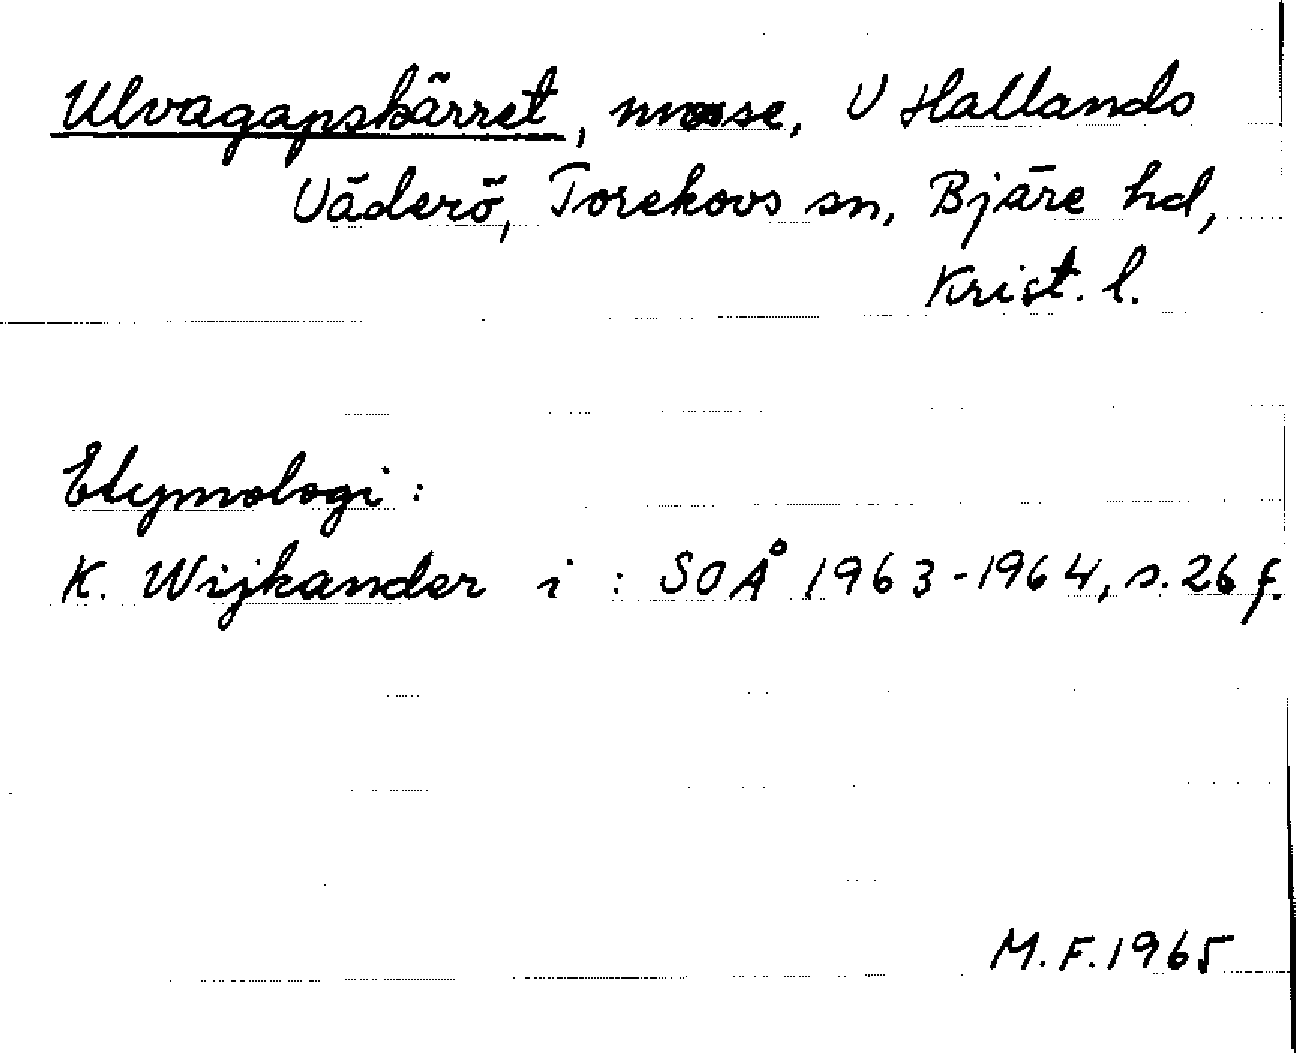 Ulvagapskärret, mosse, V Hallands
Väderö, Torekovs sn, Bjäre hd,
Krist. l.
Etymologi:
K. Wijkander i : SOÅ 1963-1964, s. 26 f.
M.F. 1965